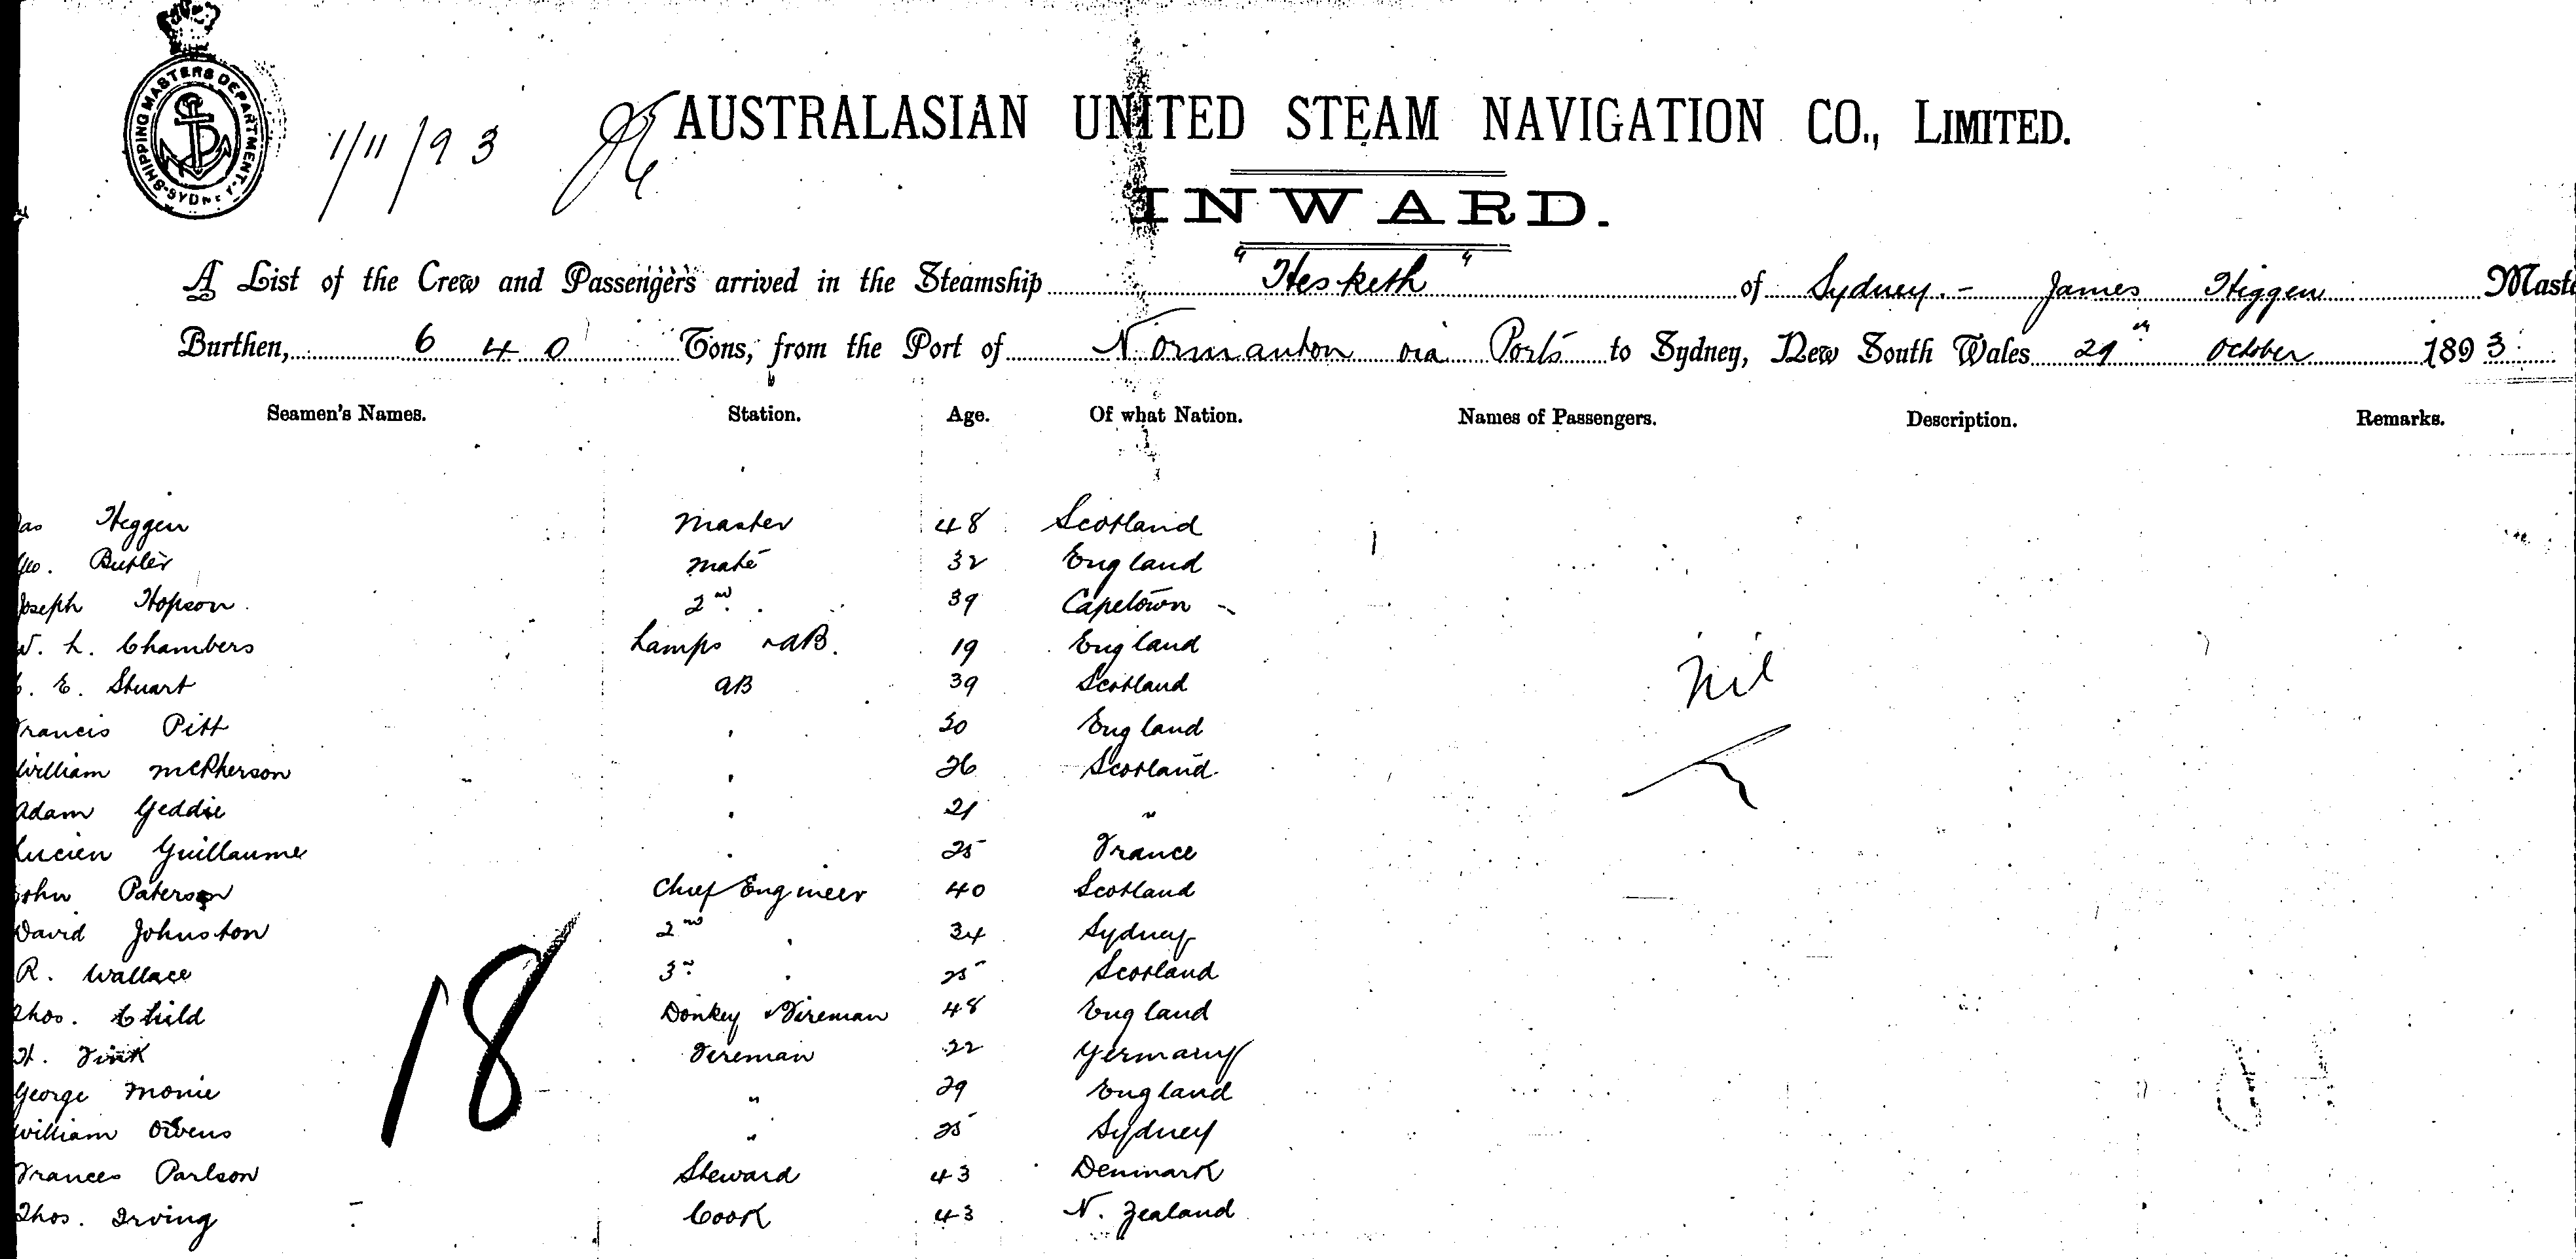 SHIPPING MASTERS DEPARTMENT SYDNEY
1/11/93
AUSTRALASIAN UNITED STEAM NAVIGATION CO., LIMITED.
INWARD.
A List of the Crew and Passengers arrived in the Steamship "Hesketh" of Sydney. - James Higgen Maste
Burthen, 640 Tons, from the Port of Normanton via Ports to Sydney, New South Wales 29th October 1893
Seamen's Names. Station. Age. Of what Nation. Names of Passengers. Description. Remarks.
Jas Higgen Master 48 Scotland
Geo. Butler Mate 32 England
Joseph Hopson 2nd 39 Capetown
W. L. Chambers Lamps & AB. 19 England
E. Stuart AB 39 Scotland
Nil
Francis Pitt 30 England
William McPherson 26 Scotland
Adam Geddie 21 "
Lucien Guillaume 25 France
John Paterson Chief Engineer 40 Scotland
David Johnston 2nd 34 Sydney
R. Wallace 3rd 25 Scotland
Thos. Child Donkey & Fireman 48 England
18
H. Fink Fireman 22 Germany
George Monie " 29 England
William Owens " 25 Sydney
Frances Parlson Steward 43 Denmark
Thos. Irving Cook 43 N. Zealand